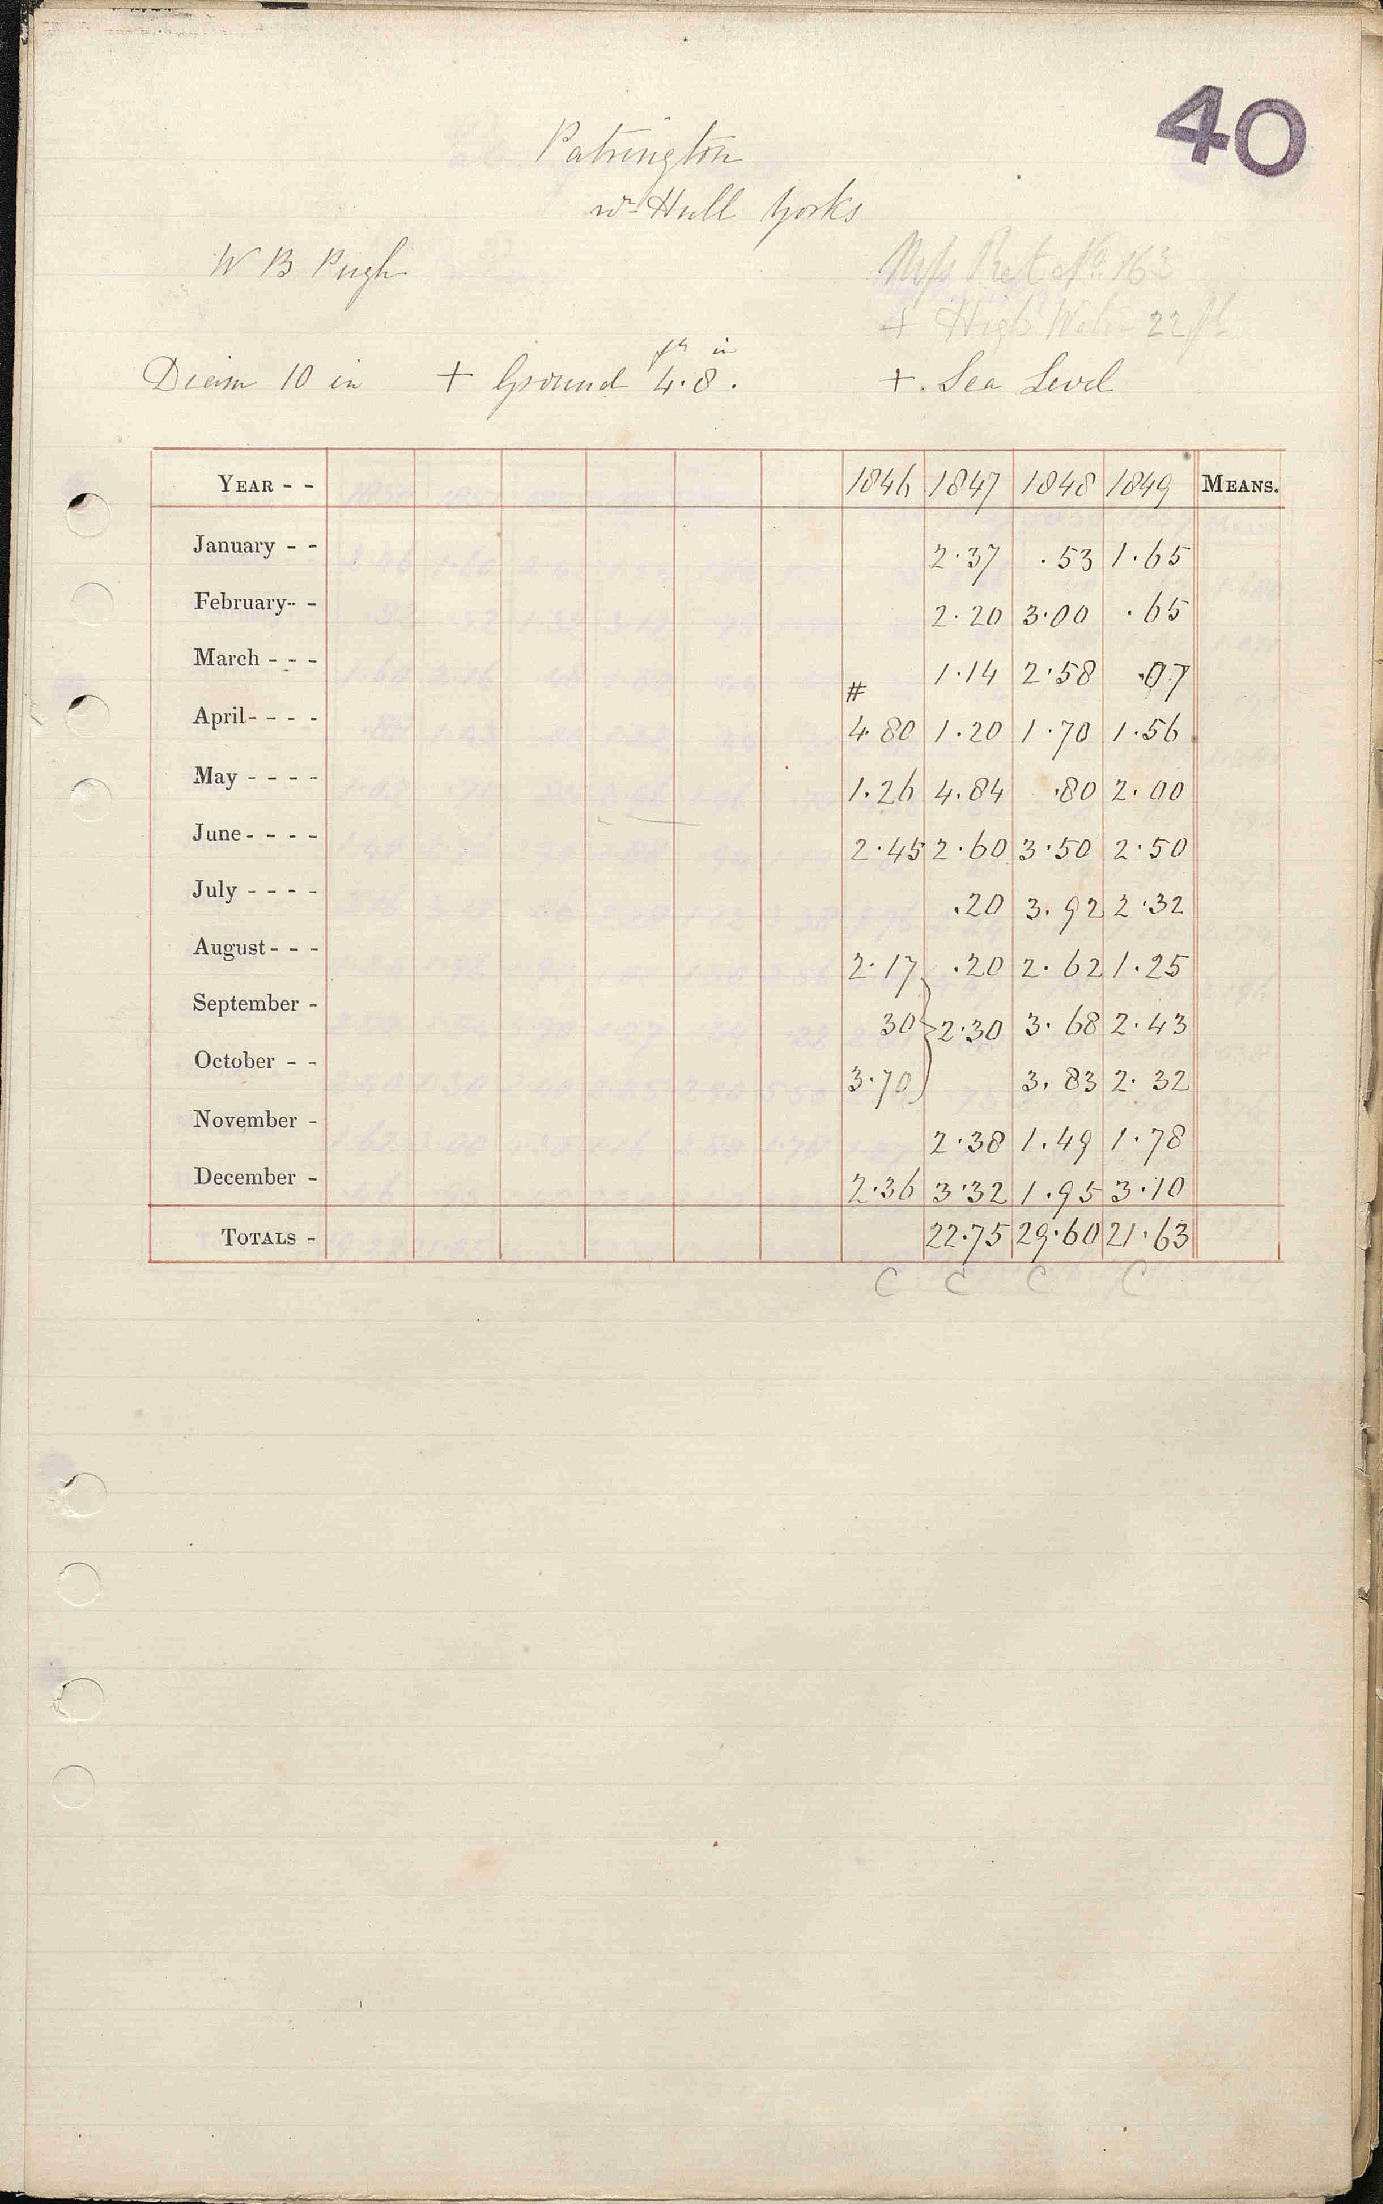 40
Patrington
nr Hull Yorks
W B Pugh
Mss Ret No. 163
+ High Water 22 ft
ft in
Diam 10 in + Ground 4.8. + Sea Level
YEAR - - 1846 1847 1848 1849 MEANS.
January - - 2.37 .53 1.65
February - - 2.20 3.00 .65
March - - - 1.14 2.58 .07
#
April - - - - 4.80 1.20 1.70 1.56
May - - - - 1.26 4.84 .80 2.00
June - - - - 2.45 2.60 3.50 2.50
July - - - - .20 3.92 2.32
August - - - 2.17 .20 2.62 1.25
September - 30 } 2.30 3.68 2.43
October - - 3.70 3.83 2.32
November - 2.38 1.49 1.78
December - 2.36 3.32 1.95 3.10
TOTALS - 22.75 29.60 21.63
C C C C